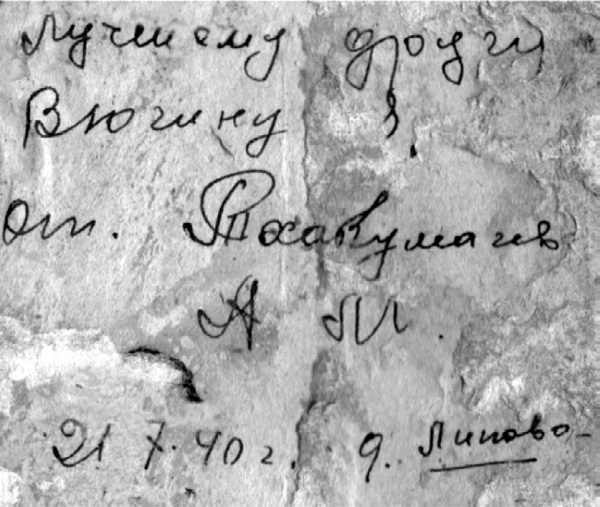 Лучшему другу
Вьюгину З.
от. Тхакумачев
А М.
21 7. 40 г. д. Липово-